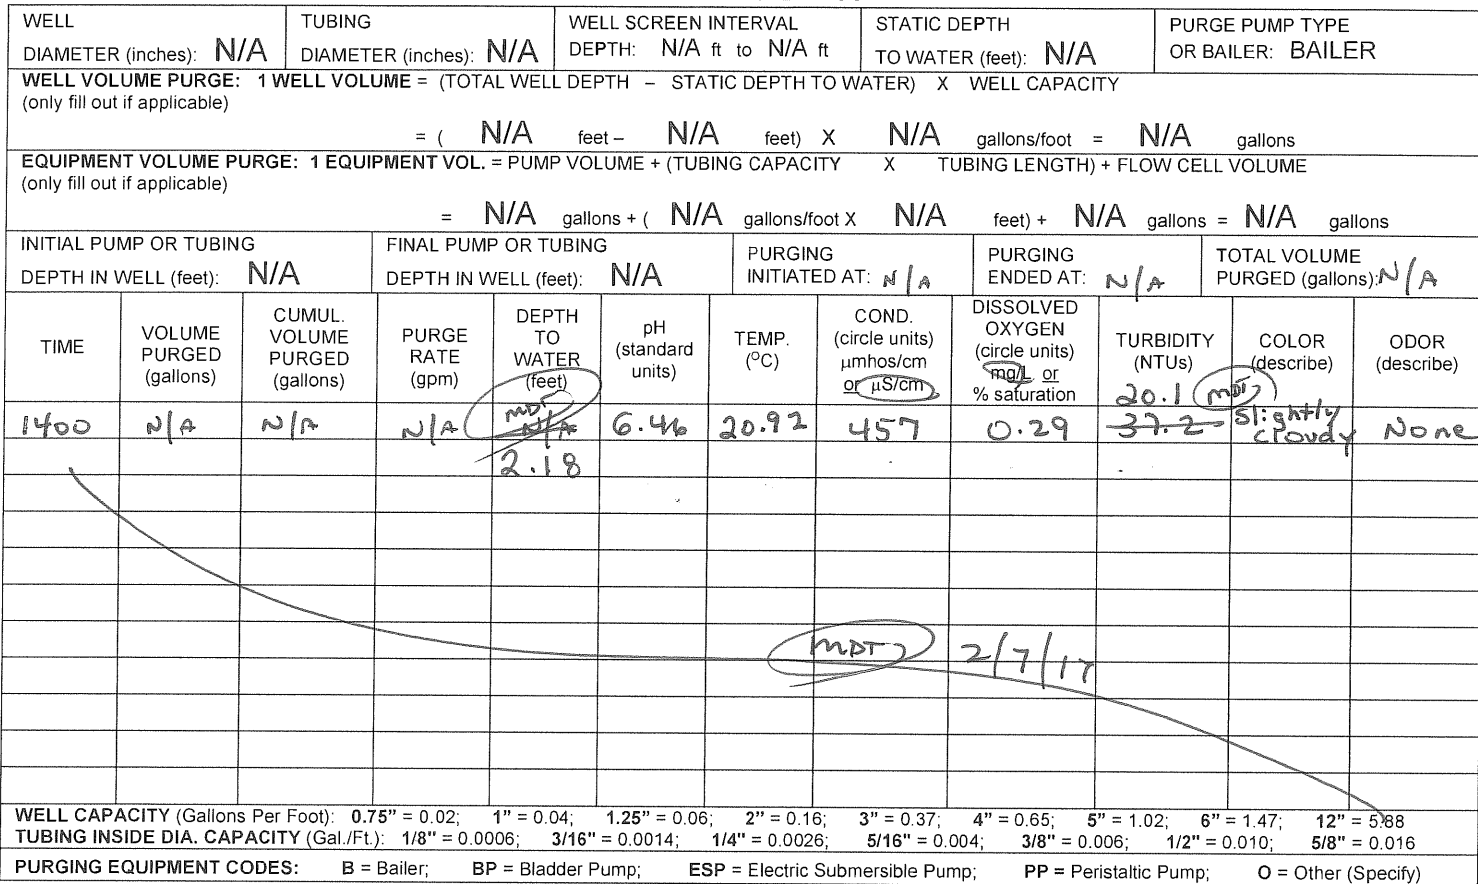 WELL
DIAMETER (inches): N/A
TUBING
DIAMETER (inches): N/A
WELL SCREEN INTERVAL
DEPTH: N/A ft to N/A ft
STATIC DEPTH
TO WATER (feet): N/A
PURGE PUMP TYPE
OR BAILER: BAILER
WELL VOLUME PURGE: 1 WELL VOLUME = (TOTAL WELL DEPTH – STATIC DEPTH TO WATER) X WELL CAPACITY
(only fill out if applicable)
= ( N/A feet – N/A feet) X N/A gallons/foot = N/A gallons
EQUIPMENT VOLUME PURGE: 1 EQUIPMENT VOL. = PUMP VOLUME + (TUBING CAPACITY X TUBING LENGTH) + FLOW CELL VOLUME
(only fill out if applicable)
= N/A gallons + ( N/A gallons/foot X N/A feet) + N/A gallons = N/A gallons
INITIAL PUMP OR TUBING
DEPTH IN WELL (feet): N/A
FINAL PUMP OR TUBING
DEPTH IN WELL (feet): N/A
PURGING
INITIATED AT: N/A
PURGING
ENDED AT: N/A
TOTAL VOLUME
PURGED (gallons): N/A
TIME
VOLUME
PURGED
(gallons)
CUMUL.
VOLUME
PURGED
(gallons)
PURGE
RATE
(gpm)
DEPTH
TO
WATER
(feet)
pH
(standard
units)
TEMP.
(°C)
COND.
(circle units)
µmhos/cm
or µS/cm
DISSOLVED
OXYGEN
(circle units)
mg/L or
% saturation
TURBIDITY
(NTUs)
COLOR
(describe)
ODOR
(describe)
MDT
20.1 MDT
1400 N/A N/A N/A N/A 6.46 20.92 457 0.29 37.2 Slightly cloudy None
2.18
MDT 2/7/17
WELL CAPACITY (Gallons Per Foot): 0.75" = 0.02; 1" = 0.04; 1.25" = 0.06; 2" = 0.16; 3" = 0.37; 4" = 0.65; 5" = 1.02; 6" = 1.47; 12" = 5.88
TUBING INSIDE DIA. CAPACITY (Gal./Ft.): 1/8" = 0.0006; 3/16" = 0.0014; 1/4" = 0.0026; 5/16" = 0.004; 3/8" = 0.006; 1/2" = 0.010; 5/8" = 0.016
PURGING EQUIPMENT CODES: B = Bailer; BP = Bladder Pump; ESP = Electric Submersible Pump; PP = Peristaltic Pump; O = Other (Specify)